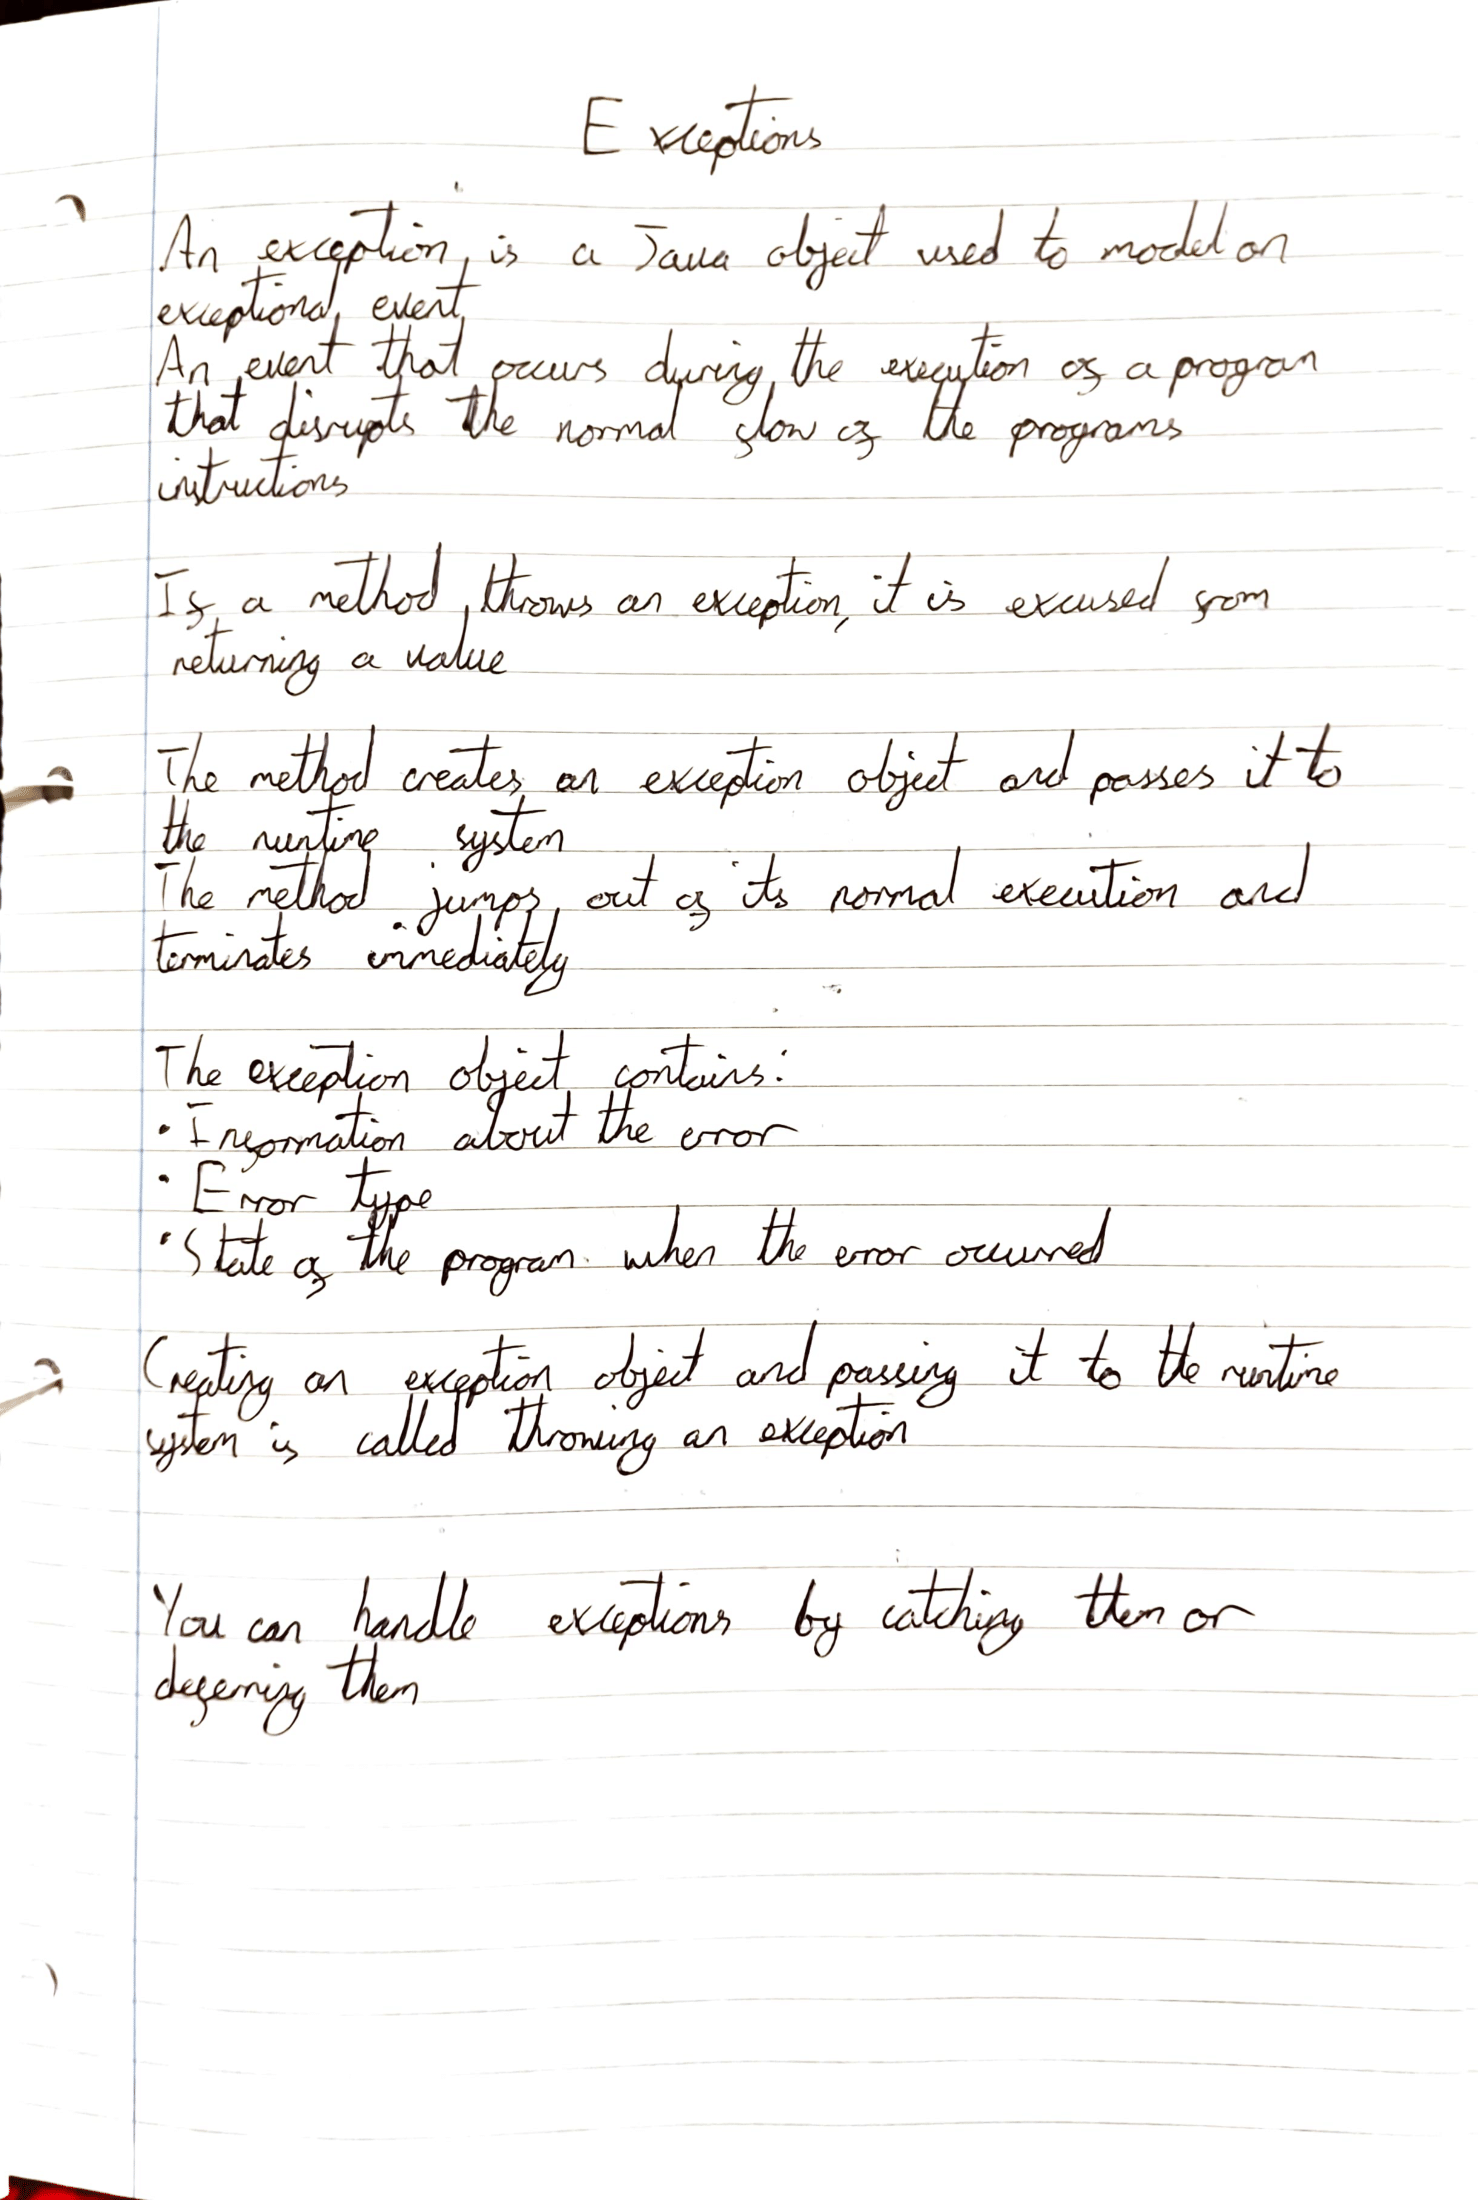 Exceptions
An exception is a Java object used to model an
exceptional event
An event that occurs during the execution of a program
that disrupts the normal flow of the programs
instructions
If a method throws an exception, it is excused from
returning a value
The method creates an exception object and passes it to
the runtime system
The method jumps out of its normal execution and
terminates immediately
The exception object contains:
• Information about the error
• Error type
• State of the program when the error occurred
Creating an exception object and passing it to the runtime
system is called throwing an exception
You can handle exceptions by catching them or
deferring them